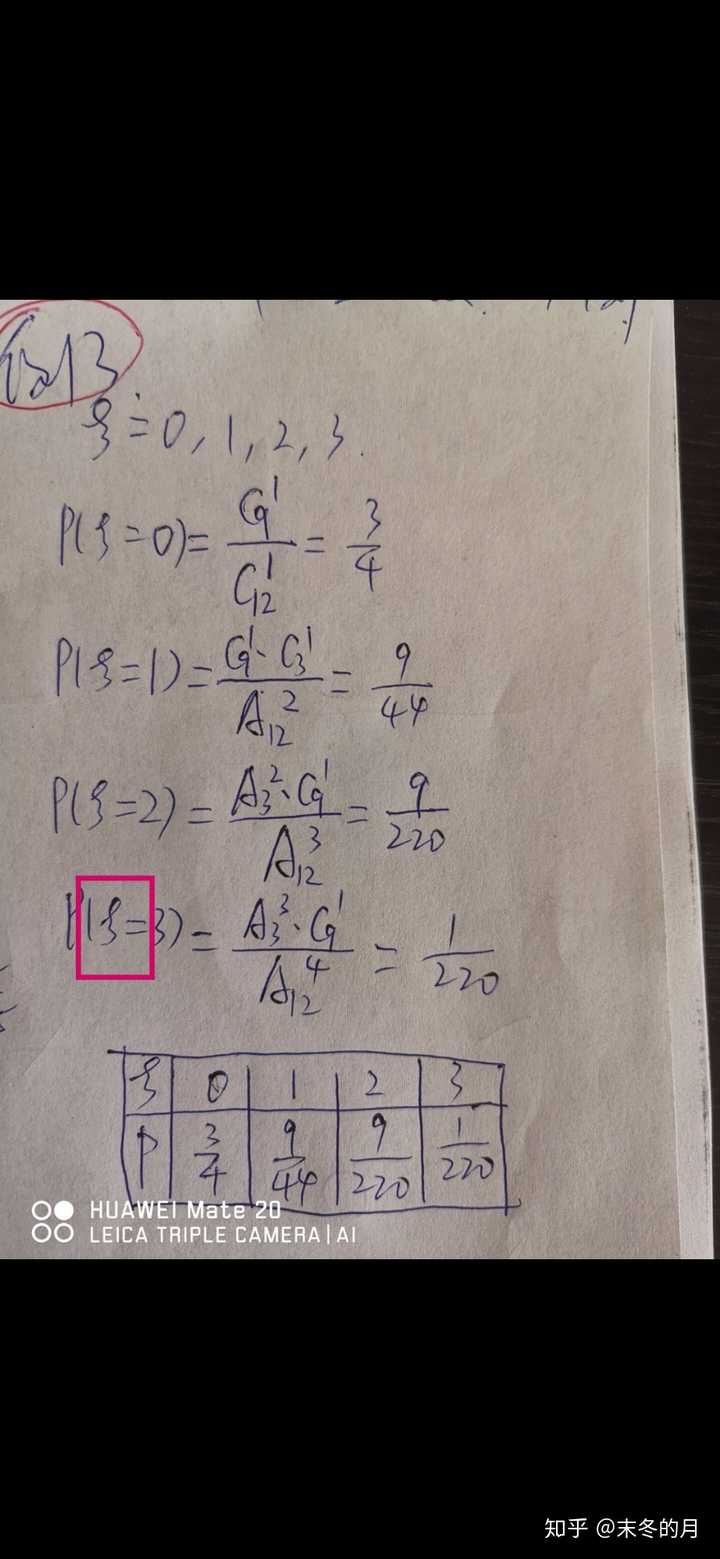 ξ=0,1,2,3.
P(ξ=0)=C₉¹/C₁₂¹=3/4
P(ξ=1)=C₉¹·C₃¹/A₁₂²=9/44
P(ξ=2)=A₃²·C₉¹/A₁₂³=9/220
P(ξ=3)=A₃³·C₉¹/A₁₂⁴=1/220
ξ 0 1 2 3
P 3/4 9/44 9/220 1/220
HUAWEI Mate 20
LEICA TRIPLE CAMERA | AI
知乎 @末冬的月